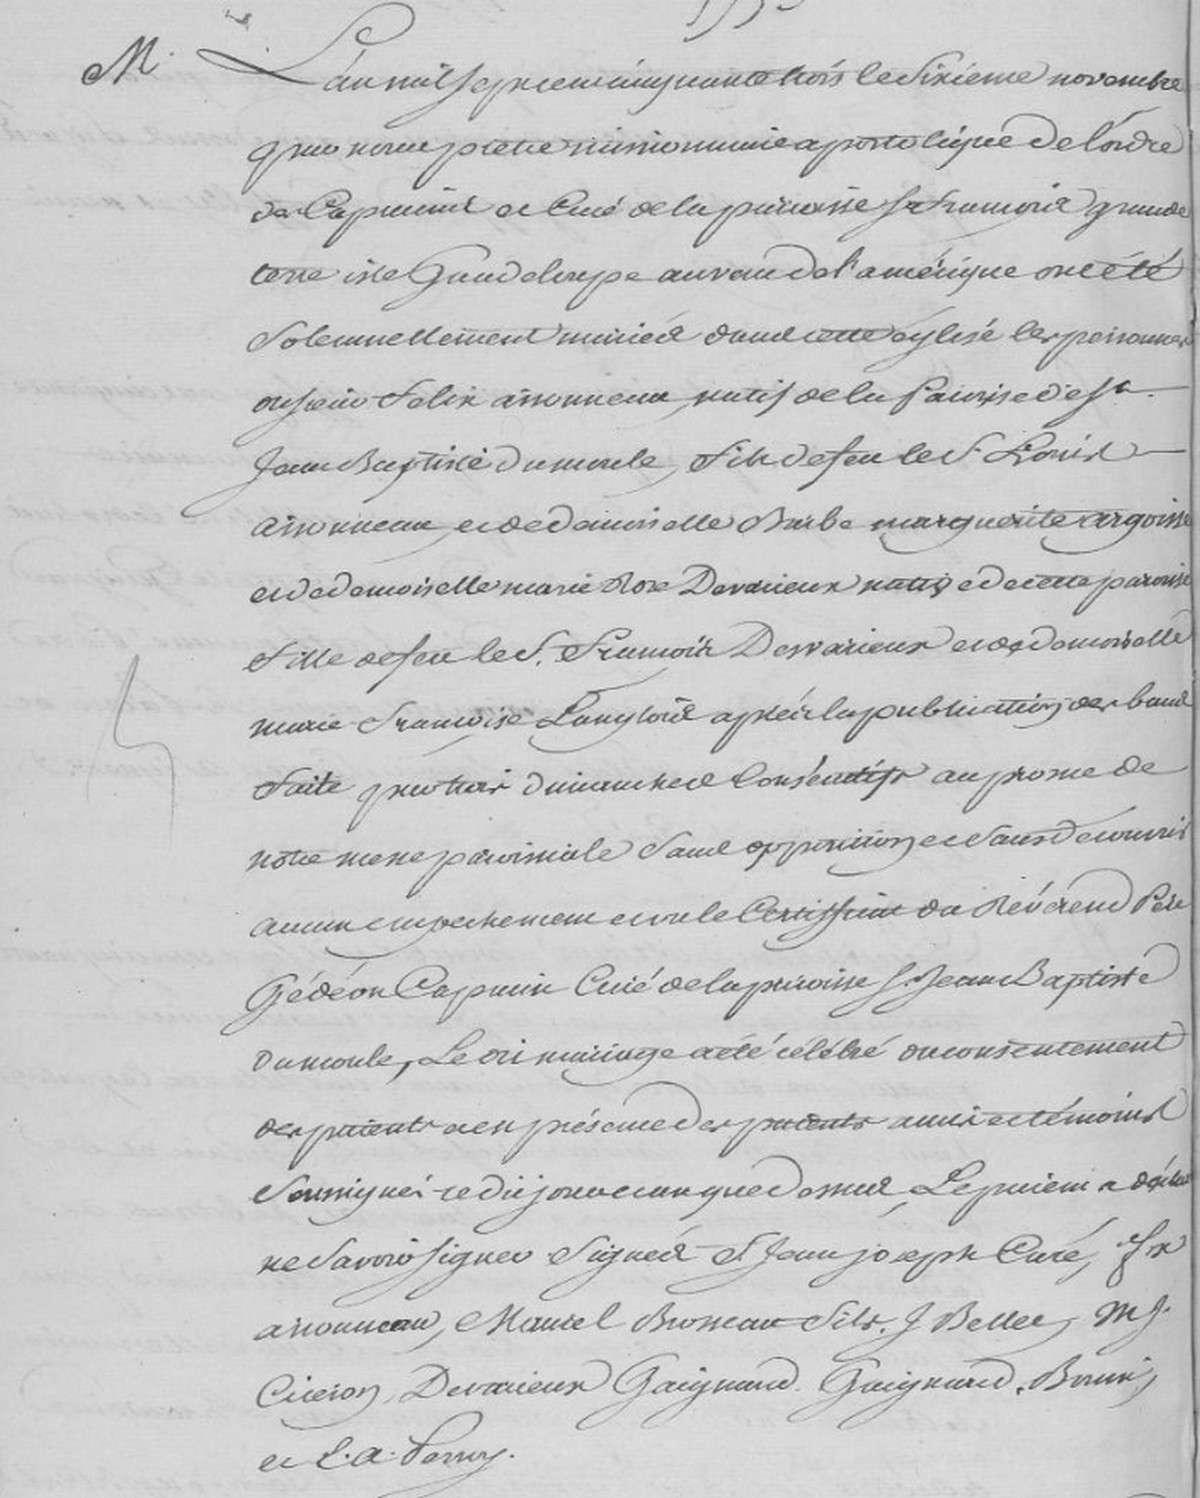 M.
L'an mil sept cent cinquante trois le Sixieme novembre
par nous prêtre missionnaire apostolique de l'ordre
des Capucins et Curé de la paroisse St francois grande
terre isle Guadeloupe au vent de l'amérique ont été
Solemnellement mariés dans cette église les personnes
du sieur Felix aissonneau, natif de la Paroisse de St.
Jean Baptiste du moule, fils de feu le S. Louis
aissonneau, et de demoiselle Barbe marguerite argoisse
et de demoiselle marie Rose Devarieux native de cette paroisse
fille de feu le S. francois Desvarieux et de demoiselle
marie francoise Langlois après la publication des bans
faite par trois dimanches Consécutifs au prosne de
notre messe paroissiale sans opposition et sans découvrir
aucun empechement et vu le Certifficat du Révérend Père
Gédéon Capucin Curé de la paroisse S. Jean Baptiste
du moule, Le dit mariage a été célébré du consentement
des parents et en présence des parents amis et témoins
Soussignés ledit jour et an que dessus, 
ne savoir signer Signés f. Jean joseph Curé, fx
aissonneau, Mauzel Brosseau fils. J Bellee, M J.
Ciceron, Devarieux Gaignard. Gaignard, Bonin,
et L. A. Perroy.